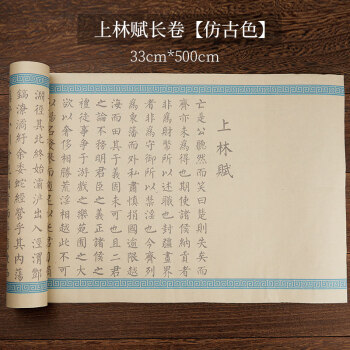 上林赋长卷【仿古色】
33cm*500cm
上林賦
亡是公听然而笑曰楚則失矣而
齊亦未為得也夫使諸侯納貢者
非為財幣所以述職也封疆畫界
者非為守御所以禁淫也今齊列
為東藩而外私肅慎捐國逾限越
海而田其于義固未可也且二君
之論不務明君臣之義正諸侯之
禮徒事爭于游戲之樂苑囿之大
欲以奢侈相勝荒淫相越此不可
其北終始灞滻出入涇渭酆
鎬潦潏紆余委蛇經營乎其內蕩